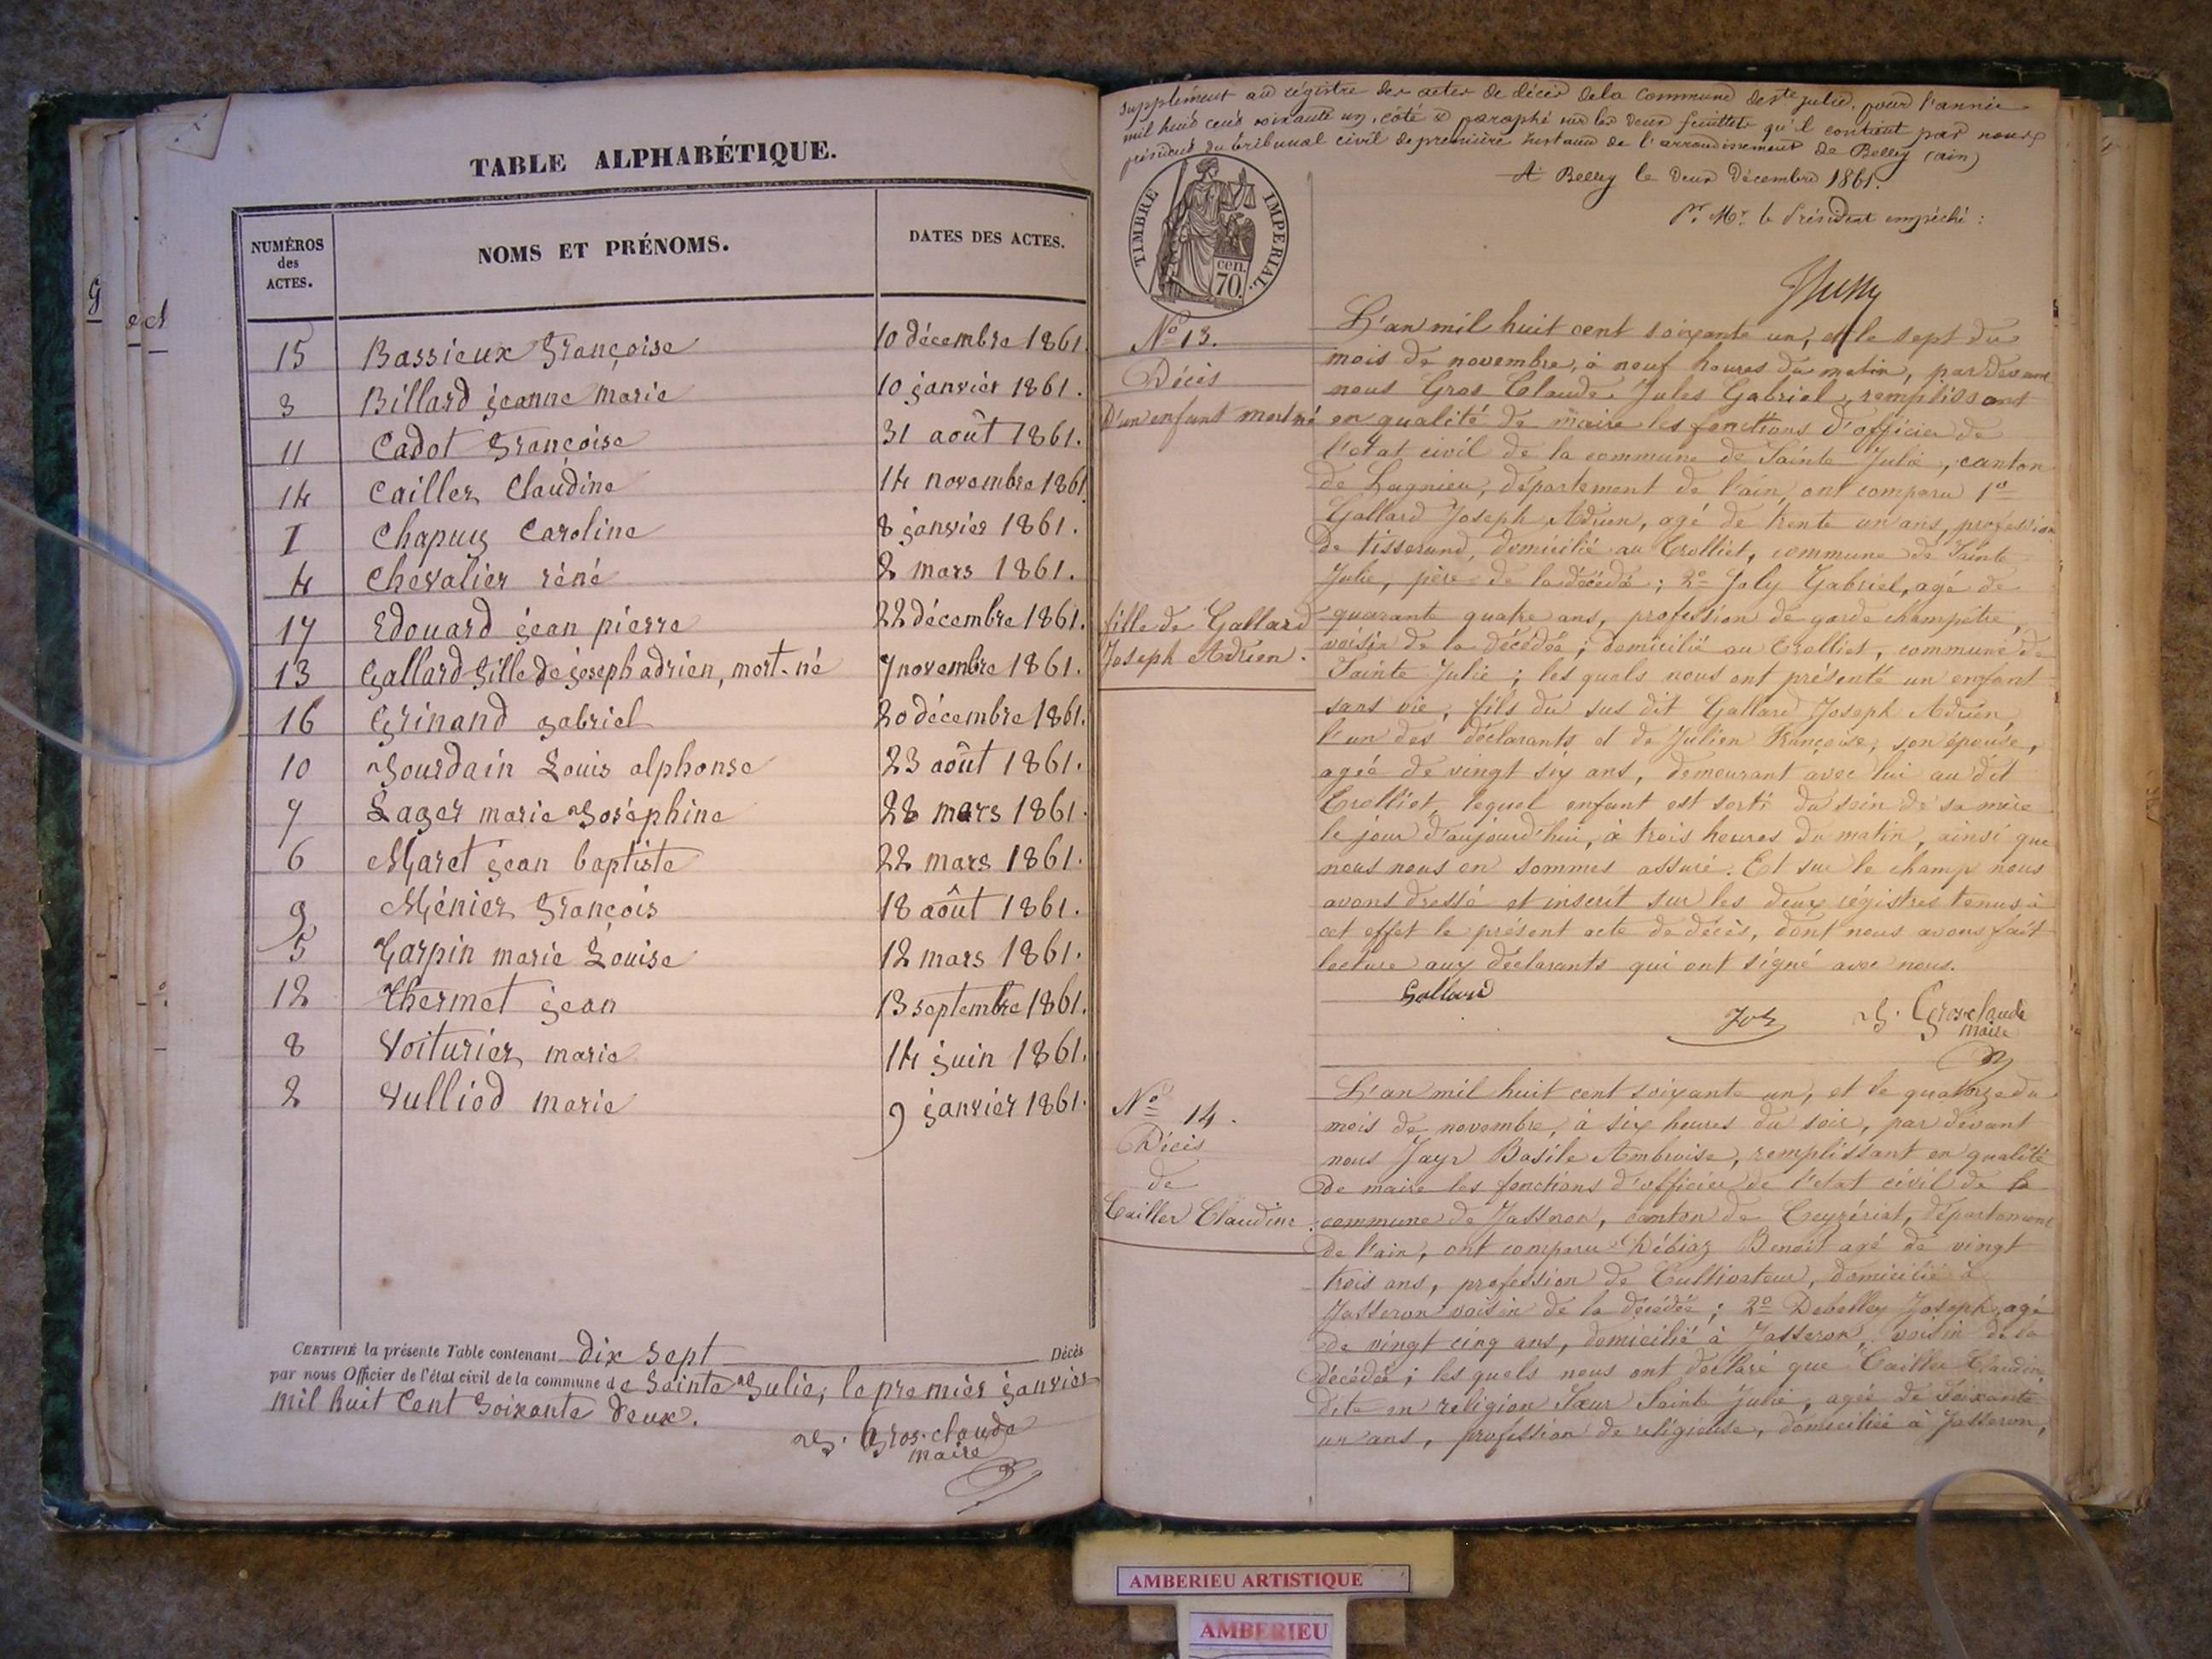 TABLE ALPHABÉTIQUE.
NUMÉROS des ACTES. NOMS ET PRÉNOMS. DATES DES ACTES.
15 Bassieux Françoise 10 décembre 1861.
3 Billard jeanne marie 10 janvier 1861.
11 Cadot Françoise 31 août 1861.
14 Cailler Claudine 14 novembre 1861
1 Chapuy Caroline 8 janvier 1861.
4 Chevalier réné 2 mars 1861.
17 Edouard jean pierre 22 décembre 1861.
13 Gallard fille de joseph adrien, mort-né 7 novembre 1861.
16 Grinand gabriel 20 décembre 1861.
10 Jourdain Louis alphonse 23 août 1861.
7 Lager marie Joséphine 28 mars 1861.
6 Maret jean baptiste 22 mars 1861.
9 Ménier François 18 août 1861.
5 Tarpin marie Louise 12 mars 1861.
12 Thermet jean 13 septembre 1861.
8 Voiturier marie 14 juin 1861.
2 Vulliod marie 9 janvier 1861.
CERTIFIÉ la présente Table contenant dix sept Décès
par nous Officier de l'état civil de la commune de Sainte Julie, le premier janvier
mil huit Cent Soixante deux.
J. Gros-claude
maire
Supplément au régistre des actes de décès dela commune de ste julie, pour l'année
mil huit cent soixante un, côté & paraphé sur les deux feuillets qu'il contient par nous
président du tribunal civil de première instance de l'arrondissement de Belley (ain)
A Belley le deux Décembre 1861.
Pr. Mr. le Président empêché :
TIMBRE IMPERIAL.
cen.
70.
No 13.
Décès
D'un enfant mort né
fille de Gallard
Joseph Adrien.
L'an mil huit cent soixante un, et le sept du
mois de novembre, à neuf heures du matin, pardevant
nous Gros Claude Jules Gabriel, remplissant
en qualité de maire les fonctions d'officier de
l'état civil de la commune de Sainte Julie, canton
de Lagnieu, département de l'ain, ont comparu 1o
Gallard Joseph Adrien, agé de trente un ans, profession
de tisserand, domicilié au Trolliet, commune de Sainte
Julie, père de la décédé ; 2o Joly Gabriel, agé de
quarante quatre ans, profession de garde champêtre,
voisin de la décédée ; domicilié au Trolliet, commune de
Sainte Julie ; les quels nous ont présenté un enfant
sans vie, fils du sus dit Gallard Joseph Adrien,
l'un des déclarants et de Julien Françoise, son épouse,
agée de vingt six ans, demeurant avec lui au dit
Trolliet, lequel enfant est sorti du sein de sa mère
le jour d'aujourd'hui, à trois heures du matin, ainsi que
nous nous en sommes assuré. Et sur le champ nous
avons dressé et inscrit sur les deux régistres tenus à
cet effet le présent acte de décès, dont nous avons fait
lecture aux déclarants qui ont signé avec nous.
Gallard
J. Gros-claude
maire
No 14.
Décès
de
Cailler Claudine.
L'an mil huit cent soixante un, et le quatorze du
mois de novembre, à six heures du soir, par devant
nous Jayr Basile Ambroise, remplissant en qualité
de maire les fonctions d'officier de l'état civil de la
commune de Jasseron, canton de Ceyzériat, département
de l'ain, ont comparu Débiaz Benoit agé de vingt
trois ans, profession de Cultivateur, domicilié à
Jasseron voisin de la décédée ; 2o Debelley Joseph, agé
de vingt cinq ans, domicilié à Jasseron, voisin de la
décédée ; les quels nous ont declaré que Cailler Claudine
dite en religion Sœur Sainte Julie, agée de soixante
un ans, profession de religieuse, domiciliée à Jasseron,
AMBERIEU ARTISTIQUE
AMBERIEU